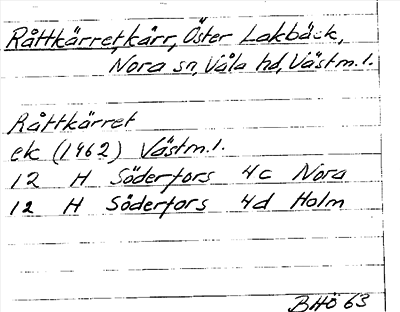 Råttkärret, kärr, Öster Lakbäck,
Nora sn, Våla hd, Västm. l.
Råttkärret
ek (1962) Västm. l.
12 H Söderfors 4c Nora
12 H Söderfors 4d Holm
BHö 63